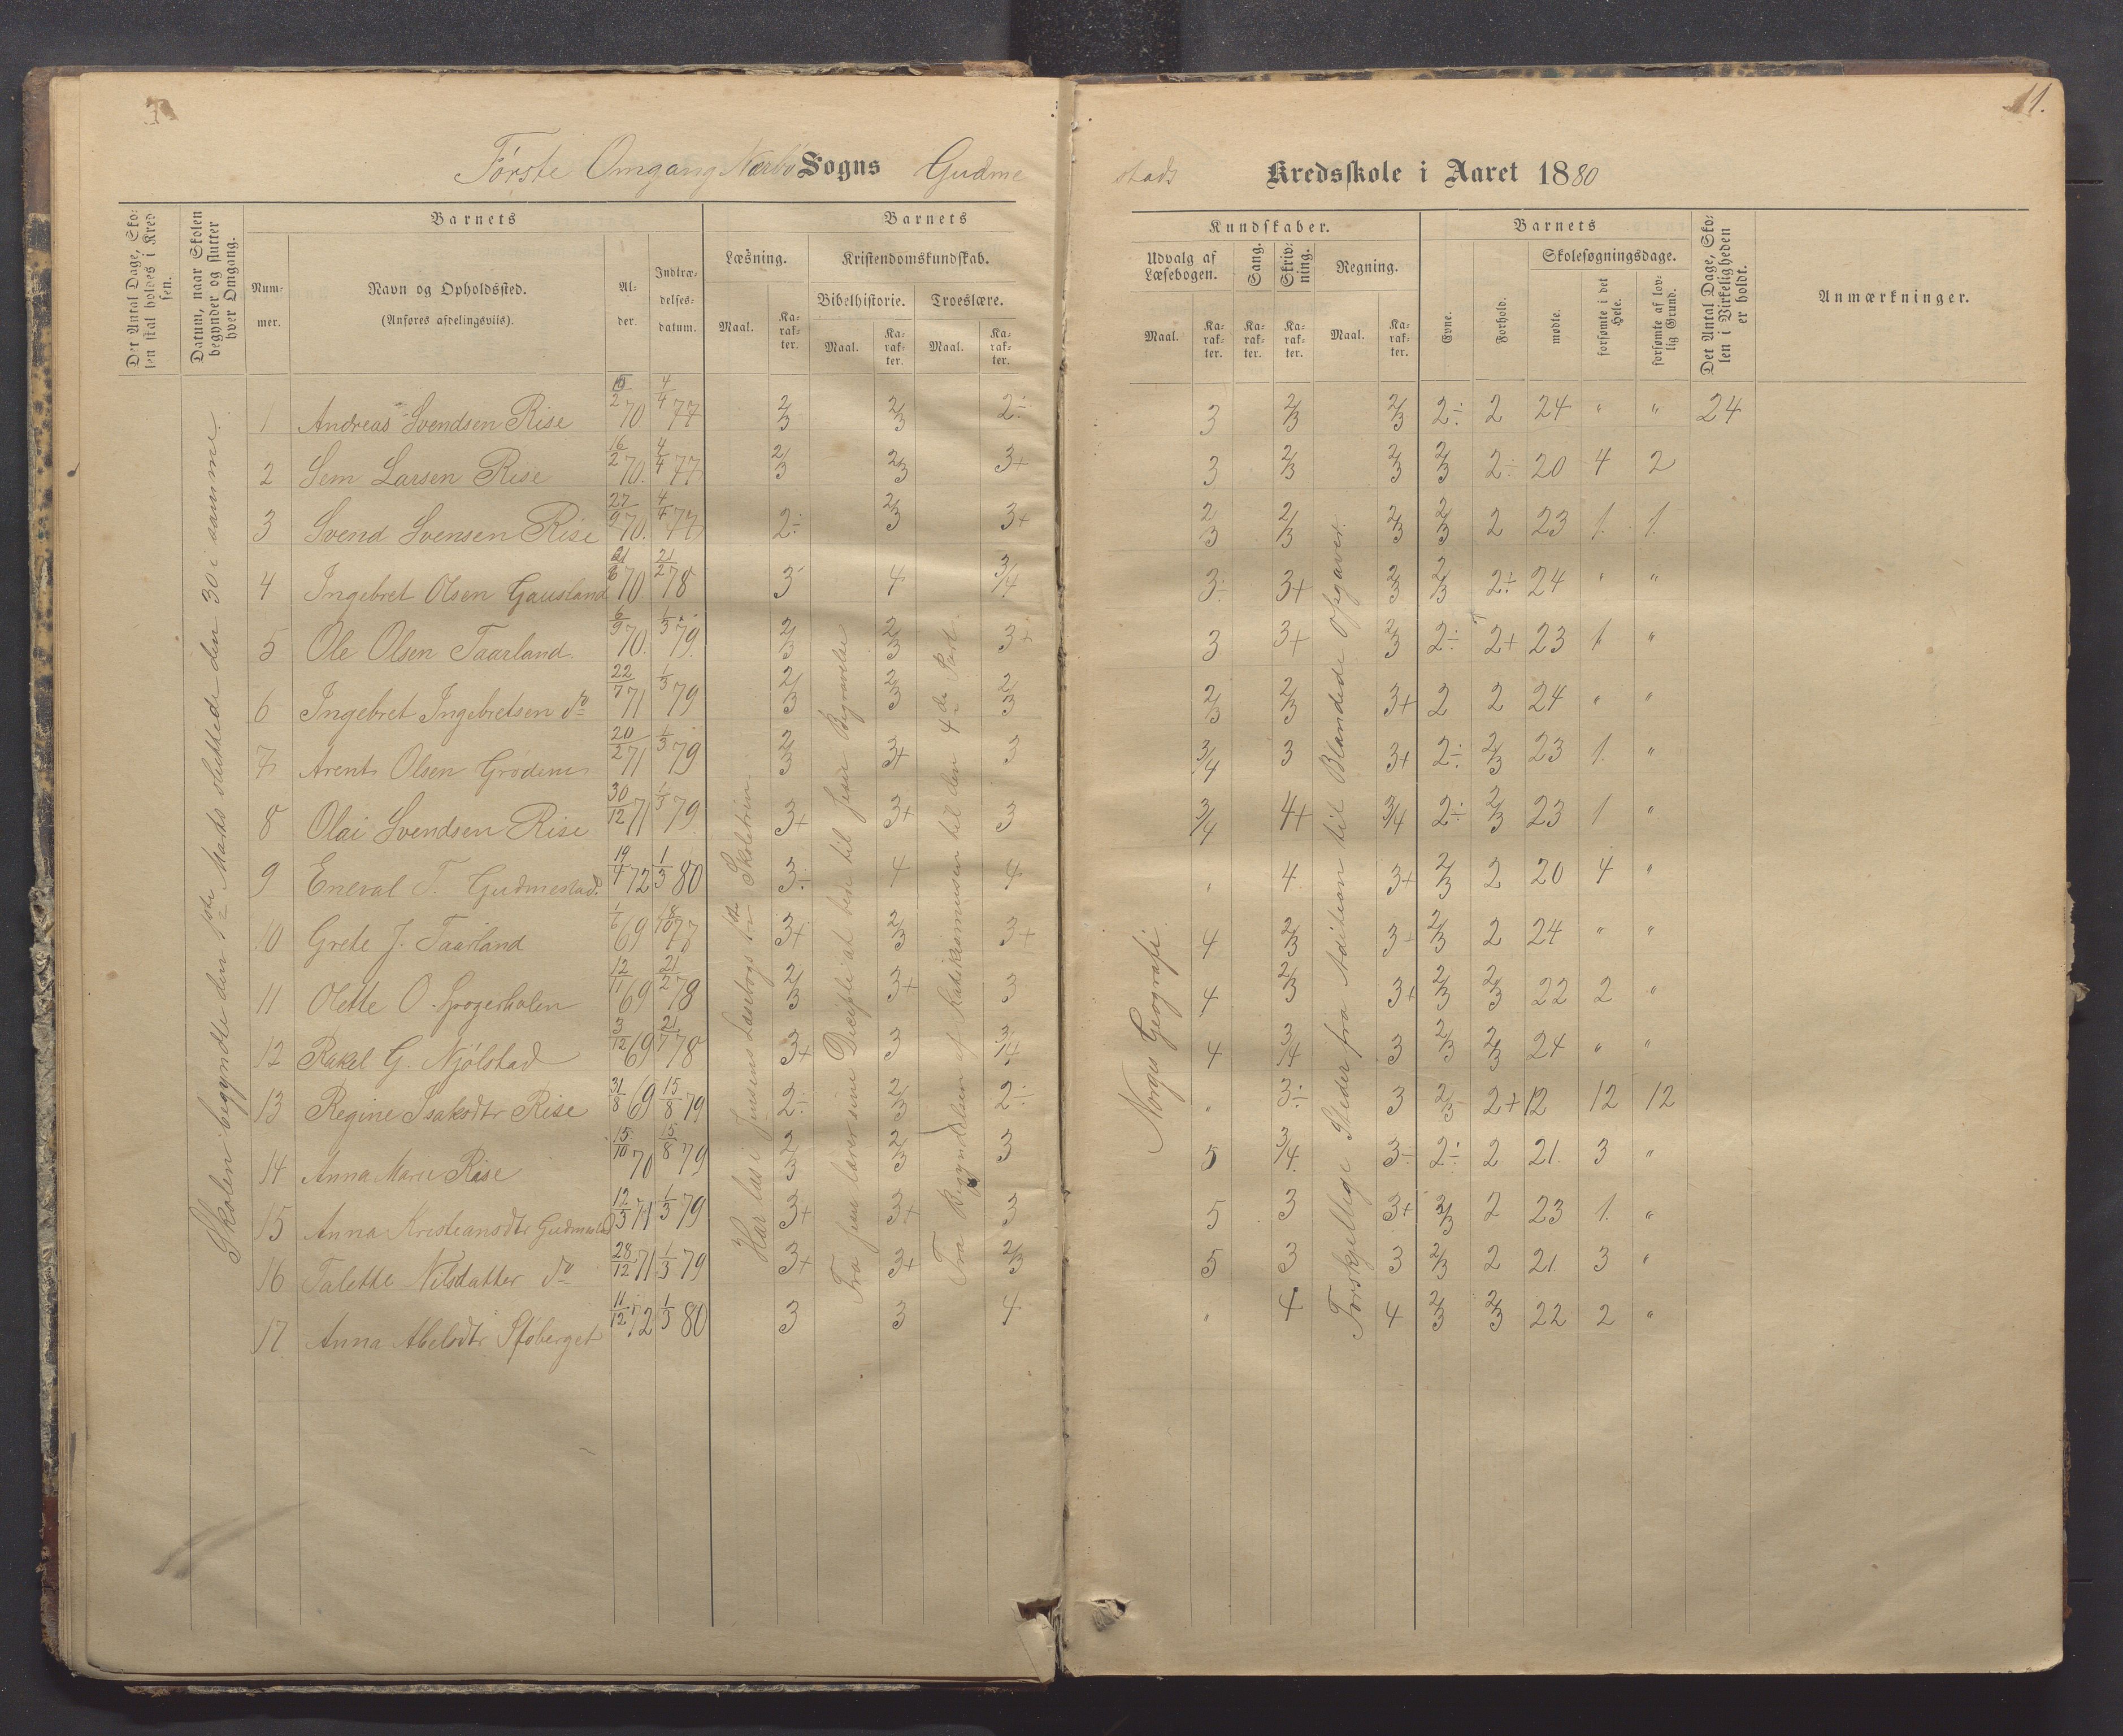 11.
Første Omgang Nærbø Sogns Gudme
stads Kredsskole i Aaret 1880
Det Antal Dage, Sko-
len skal holdes i Kred
sen.
Datum, naar Skolen
begynder og slutter
hver Omgang.
Barnets
Num-
mer.
Navn og Opholdssted.
(Anføres afdelingsviis).
Al-
der.
Indtræ-
delses-
datum.
Barnets
Læsning.
Maal.
Ka-
rak-
ter.
Kristendomskundskab.
Bibelhistorie.
Troeslære.
Maal.
Ka-
rak-
ter.
Maal.
Ka-
rak-
ter.
Kundskaber.
Udvalg af
Læsebogen.
Maal.
Ka-
rak-
ter.
Sang.
Ka-
rak-
ter.
Skriv-
ning.
Ka-
rak-
ter.
Regning.
Maal.
Ka-
rak-
ter.
Barnets
Evne.
Forhold.
Skolesøgningsdage.
mødte.
forsømte i det
Hele.
forsømte af lov-
lig Grund.
Det Antal Dage, Sko-
len i Virkeligheden
er holdt.
Anmærkninger.
Skolen begyndte den 1ste Marts sluttede den 30 i samme.
1 Andreas Svendsen Rise 15/2 70 4/4 77 2/3 2/3 2÷ 3 2/3 2/3 2÷ 2 24 " " 24
2 Sem Larsen Rise 16/2 70. 4/4 77 2/3 2/3 3+ 3 2/3 2/3 2/3 2÷ 20 4 2
3 Svend Svensen Rise 27/9 70. 4/4 77 2÷ 2/3 3+ 2/3 2/3 2/3 2/3 2 23 1. 1.
4 Ingebret Olsen Gausland 70. 21/2 78 3 4 3/4 3÷ 3+ 2/3 2/3 2÷ 24 " "
5 Ole Olsen Taarland 6/9 70. 1/3 79. 2/3 2/3 3+ 3 3+ 2/3 2÷ 2+ 23 1 "
6 Ingebret Ingebretsen do 22/7 71 1/3 79 2/3 2/3 2/3 2/3 2/3 3+ 2 2 24 " "
7 Arent Olsen Grødem 20/2 71 1/3 79 2/3 3+ 3 3/4 3 3+ 2÷ 2/3 23 1. "
8 Olai Svendsen Rise 30/12 71 1/3 79 3+ 3+ 3 3/4 4+ 3/4 2÷ 2/3 23 1 "
9 Eneval T. Gudmestad 19/4 72 1/3 80 3÷ 4 4 " 4 3+ 2/3 2 20 4 "
10 Grete J. Taarland 1/6 69 77 3+ 2/3 3+ 4 2/3 3÷ 2/3 2 24 " "
11 Olette O. 12/11 69 21/2 78 2/3 3+ 3 4 2/3 3+ 2/3 2/3 22 2 "
12 Rakel G. Njølstad 3/12 69 21/7 78 3+ 3 3/4 4 3/4 3 2/3 2/3 24 " "
13 Regine Isaksdtr Rise 31/8 69 15/8 79 2÷ 2/3 2÷ " 3÷ 3 2/3 2+ 12 12 12
14 Anna Marie Rise 15/10 70 15/8 79 2/3 2/3 3 5 3/4 3÷ 2÷ 2 21 3 "
15 Anna Kristiansdtr Gudmestad 12/3 71 1/3 79 3+ 3+ 3 5 3 3+ 2/3 2 23 1. "
16 Talette Nilsdatter do 28/12 71 1/3 79 3+ 3+ 2/3 5 3 3 2/3 2 21. 3 "
17 Anna Abelsdtr 11/12 72 1/3 80 3 3 4 " 4 4 2/3 2/3 22 2 "
Har læst i Jensens Læsebogs 1ste Skoletrin
Fra Jesu lærer sine Disciple at bede til Jesu Begravelse
Fra Begyndelsen af Katekismusen til den 4de Part
Norges Geografi
Forskjellige Steder fra Adition til Blandede Opgaver.